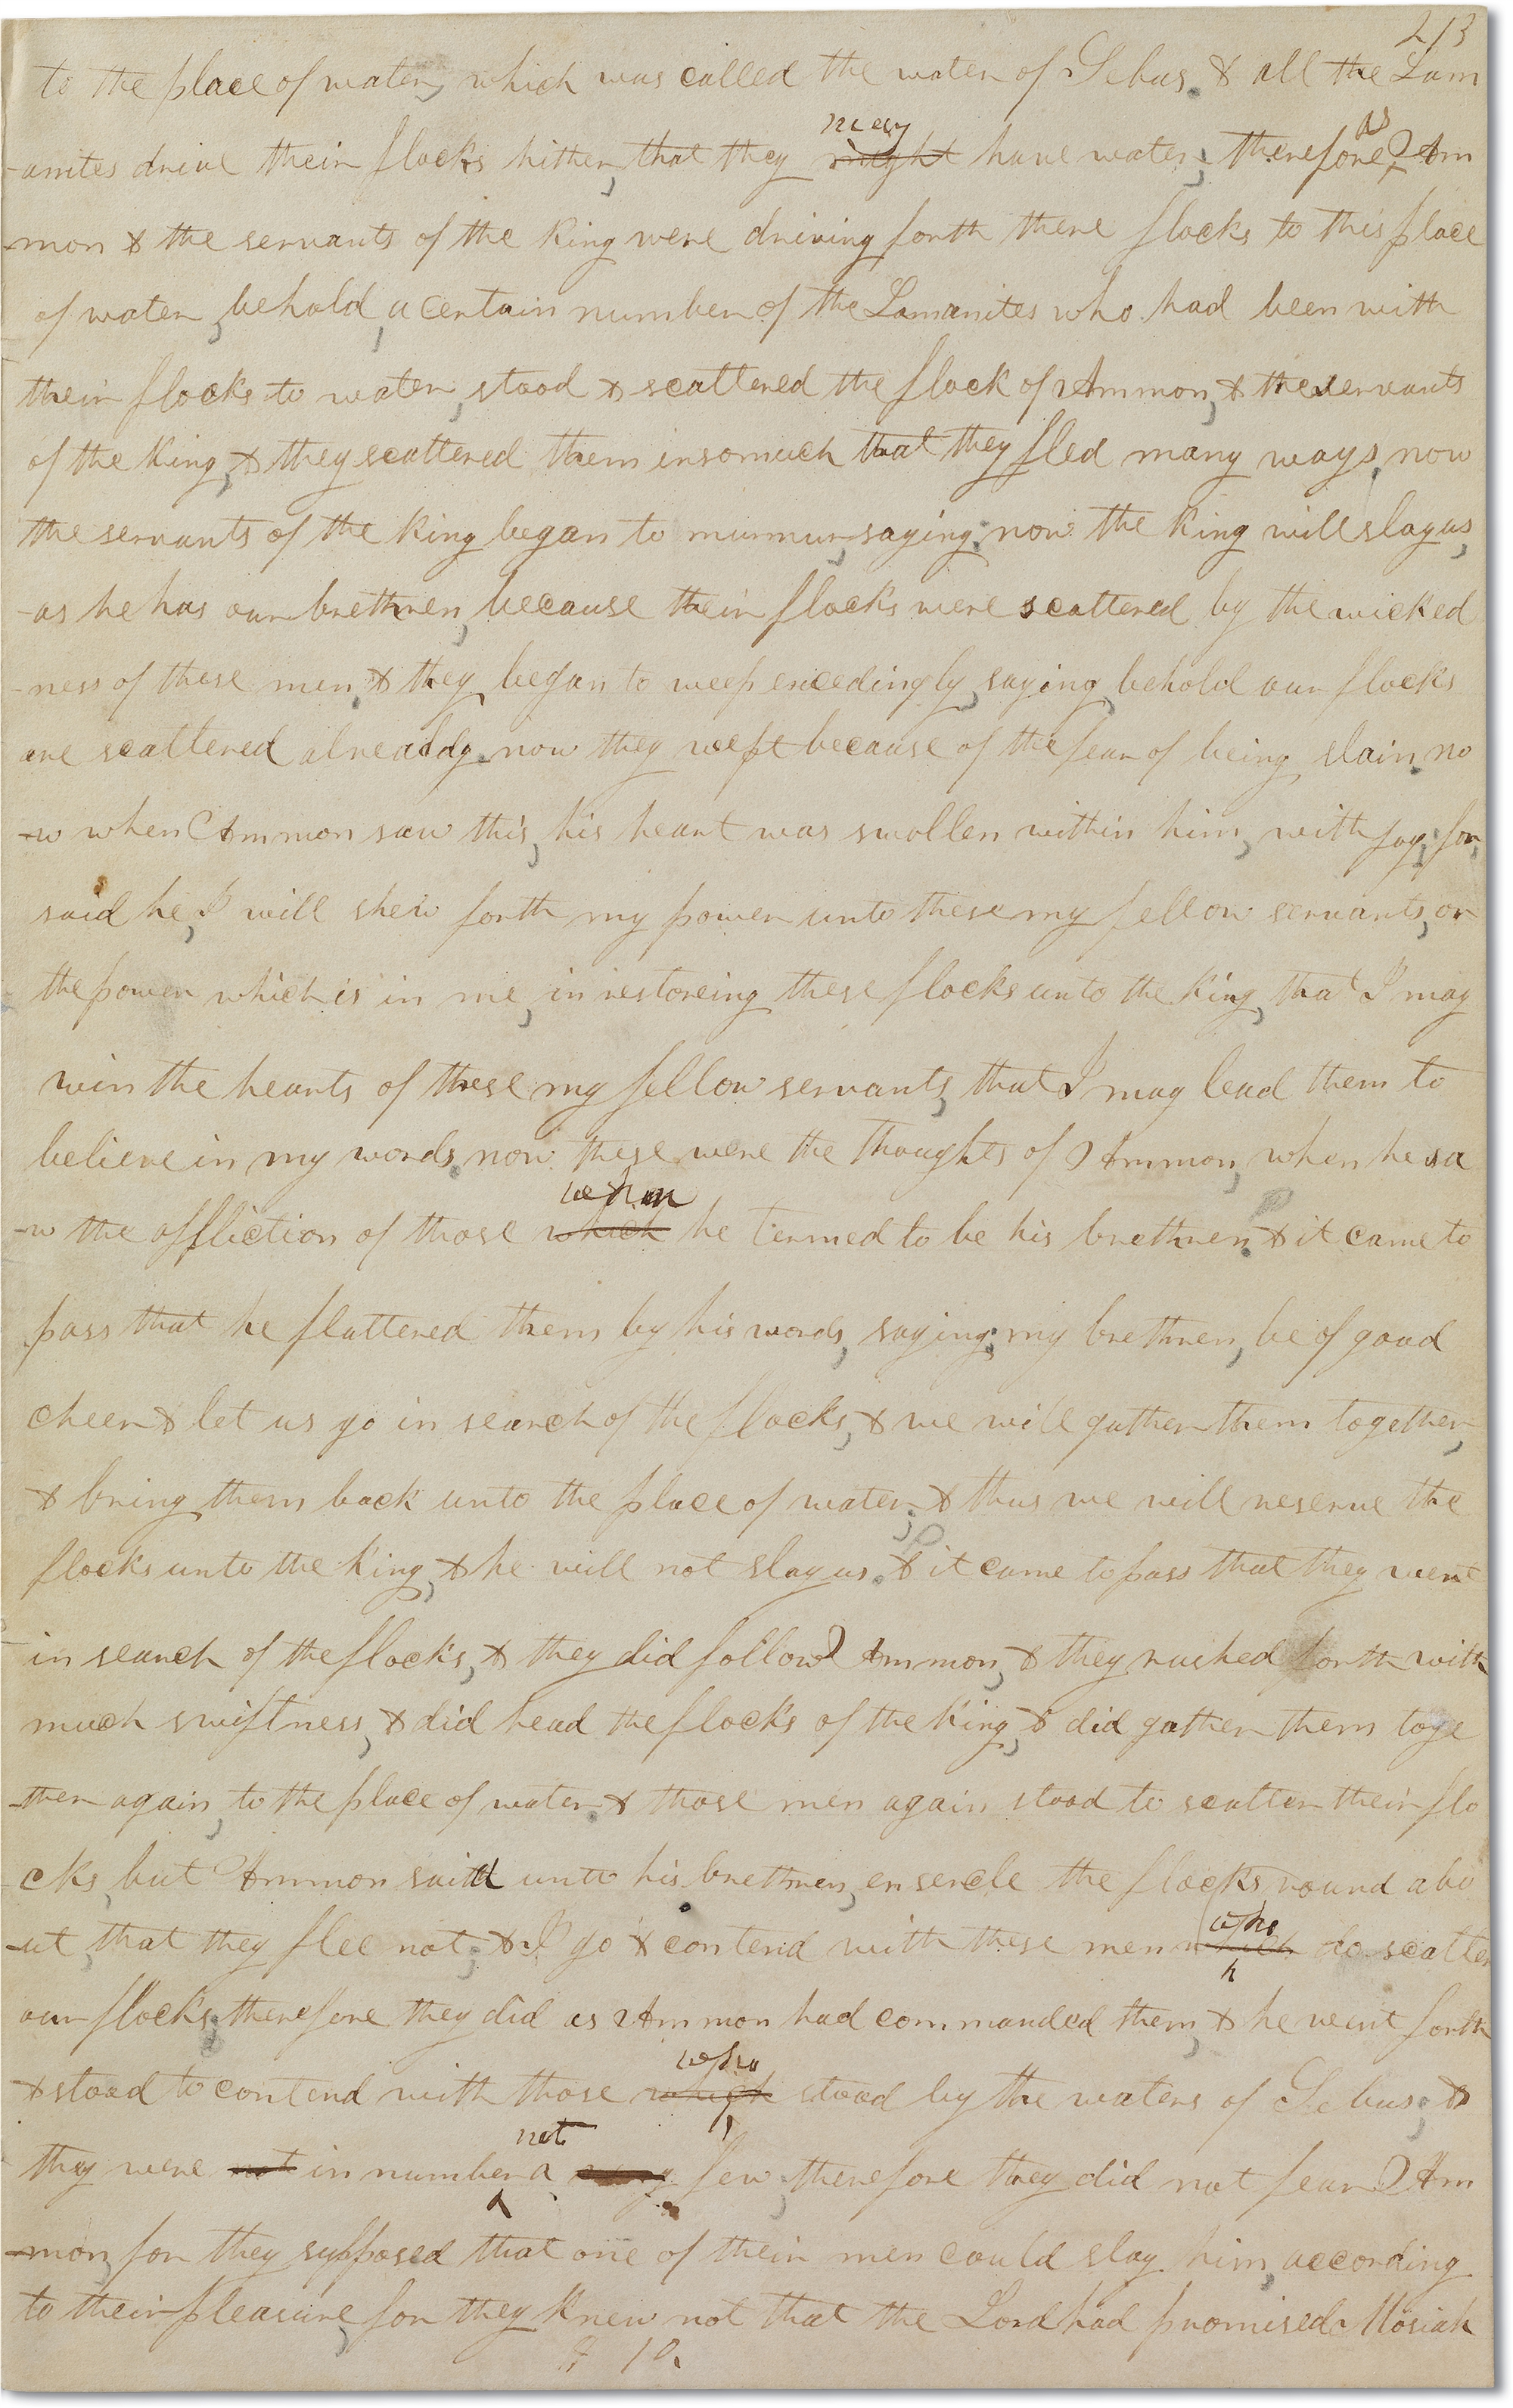 213
to the place of water, which was called the water of Sebus. & all the Lam
-anites drive their flocks hither, that they might may have water; therefore, as Am
-mon & the servants of the King were driving forth there flocks to this place
of water, behold, a certain number of the Lamanites who had been with
their flocks to water, stood & scattered the flock of Ammon, & the servants
of the King, & they scattered them insomuch that they fled many ways, now
the servants of the King began to murmur, saying: now the King will slay us,
-as he has our brethren, because their flocks were scattered by the wicked
-ness of these men, & they began to weep exceedingly, saying, behold our flocks
are scattered alreaddy. now they wept because of the fear of being slain. no
-w when Ammon saw this, his heart was swollen within him, with joy; for,
said he, I will shew forth my power unto these my fellow servants, or
the power which is in me, in restoreing these flocks unto the King, that I may
win the hearts of these my fellow servants, that I may lead them to
believe in my words. now these were the thoughts of Ammon, when he sa
-w the affliction of those which whom he termed to be his brethren. & it came to
pass that he flattered them by his words, saying; my brethren, be of good
cheer & let us go in search of the flocks, & we will gather them together,
& bring them back unto the place of water; & thus we will reserve the
flocks unto the King, & he will not slay us. & it came to pass that they went
in search of the flocks, & they did follow Ammon, & they rushed forth with
much swiftness, & did head the flocks of the King, & did gather them toge
-ther again, to the place of water. & those men again stood to scatter their flo
cks, but Ammon said unto his brethren, ensercle the flocks round abo
-ut, that they flee not; & I go & contend with these men which who do scatter
our flocks; therefore they did as Ammon had commanded them, & he went forth
& stood to contend with those which who stood by the waters of Sebus; &
they were not in number not a few; therefore they did not fear Am
-mon, for they supposed that one of their men could slay him, according
to their pleasure, for they knew not that the Lord had promised Mosiah
10.